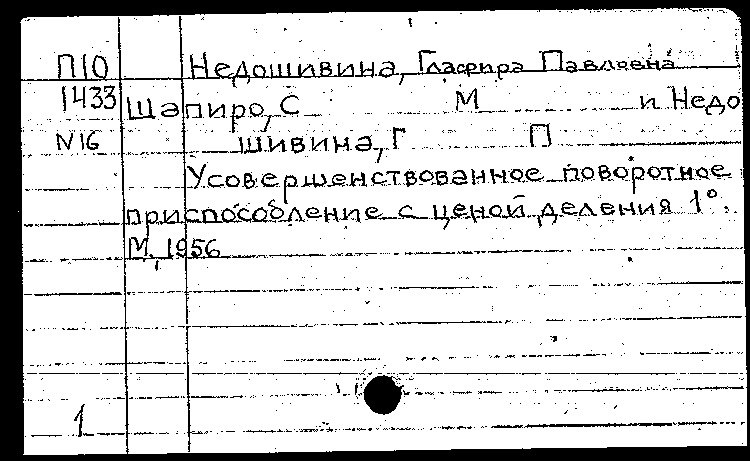 П10 Недошивина, Глафира Павловна
1433 Шапиро, С М и Недо
N16 шивина, Г П
Усовершенствованное поворотное
приспособление с ценой деления 1°.
М, 1956
1